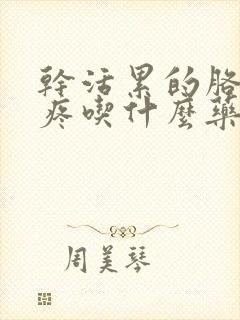 幹活累的胳
疼喫什麼藥
周美琴